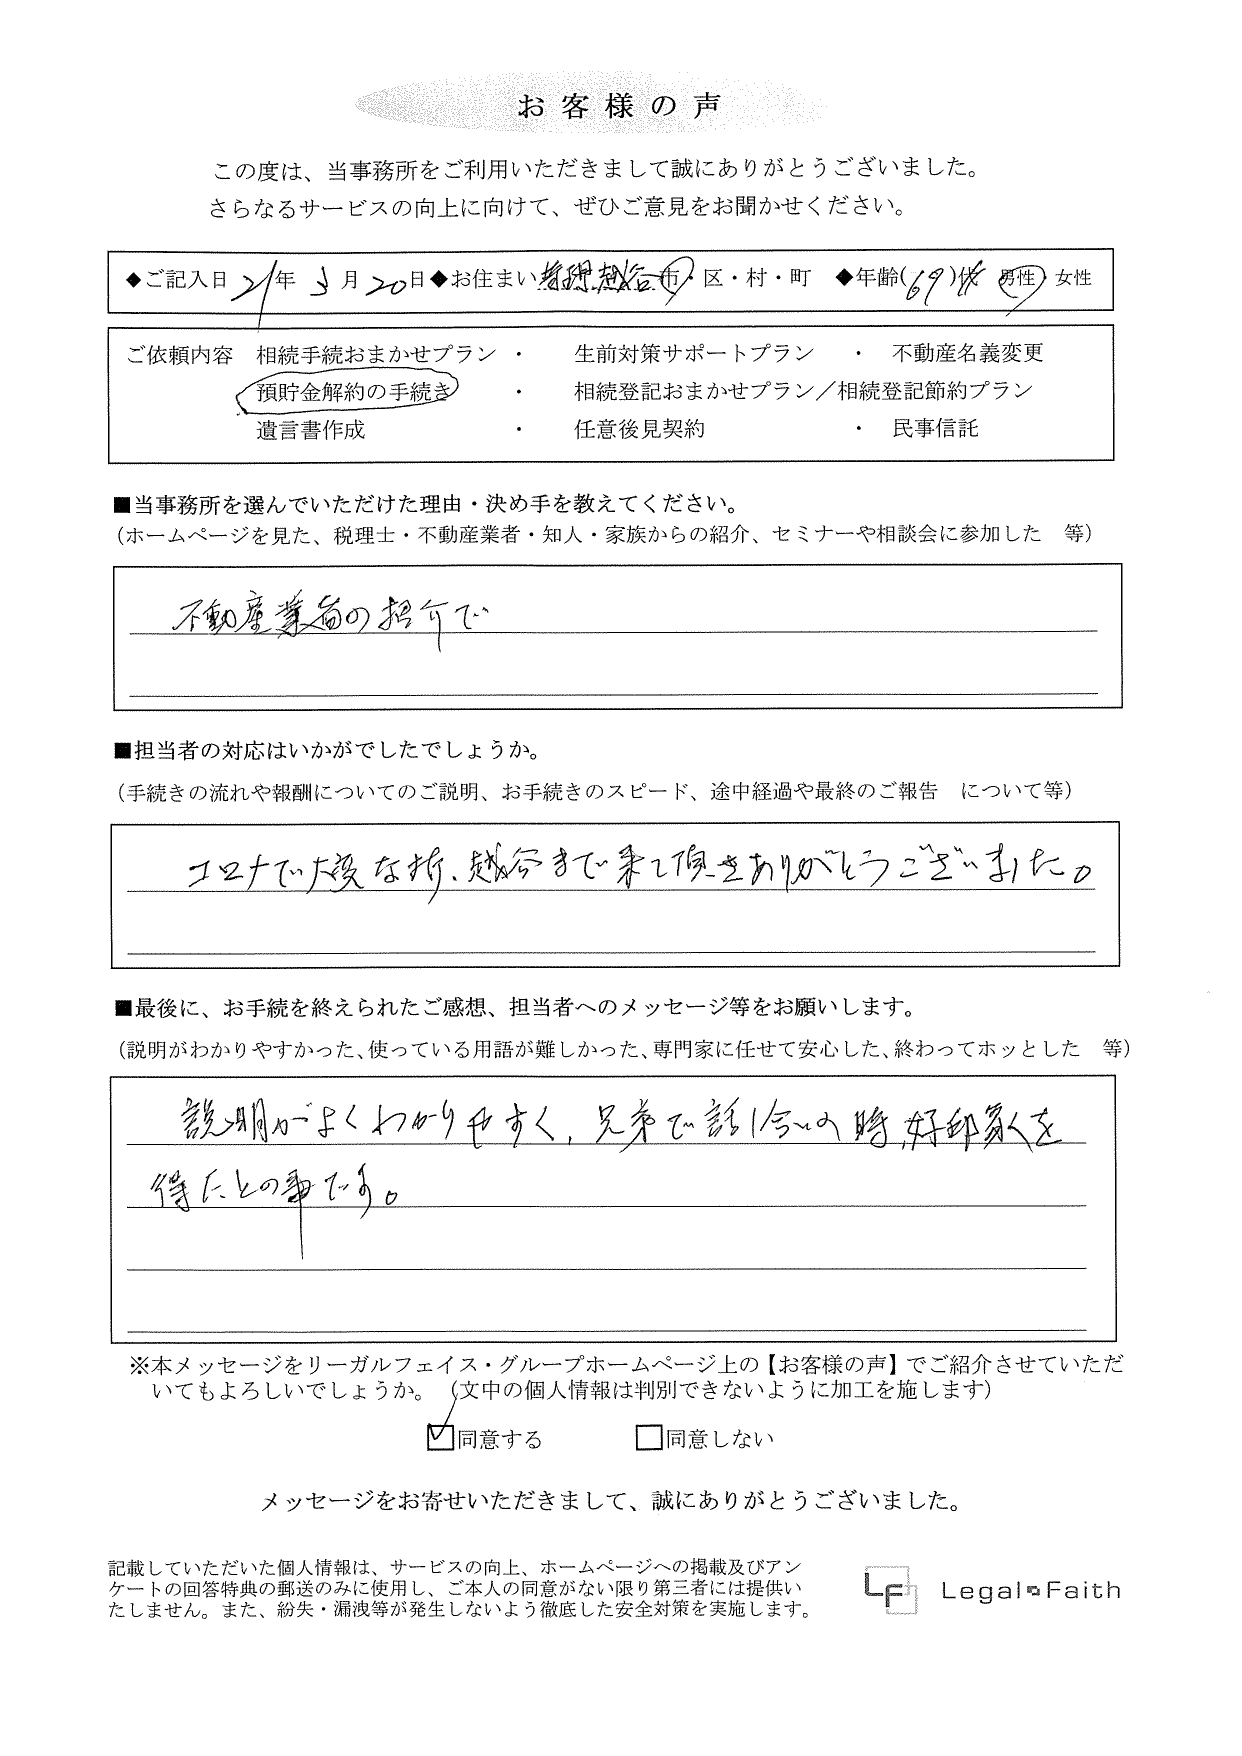 お客様の声
この度は、当事務所をご利用いただきまして誠にありがとうございました。
さらなるサービスの向上に向けて、ぜひご意見をお聞かせください。
◆ご記入日 21年 3月 20日◆お住まい 越谷市・区・村・町 ◆年齢(69)代 男性・女性
ご依頼内容 相続手続おまかせプラン ・ 生前対策サポートプラン ・ 不動産名義変更
預貯金解約の手続き ・ 相続登記おまかせプラン／相続登記節約プラン
遺言書作成 ・ 任意後見契約 ・ 民事信託
■当事務所を選んでいただけた理由・決め手を教えてください。
（ホームページを見た、税理士・不動産業者・知人・家族からの紹介、セミナーや相談会に参加した 等）
不動産業者の紹介で
■担当者の対応はいかがでしたでしょうか。
（手続きの流れや報酬についてのご説明、お手続きのスピード、途中経過や最終のご報告 について等）
コロナで大変な折、越谷まで来て頂きありがとうございました。
■最後に、お手続を終えられたご感想、担当者へのメッセージ等をお願いします。
（説明がわかりやすかった、使っている用語が難しかった、専門家に任せて安心した、終わってホッとした 等）
説明がよくわかりやすく、兄弟で話し合いの時、好印象を
得たとの事です。
※本メッセージをリーガルフェイス・グループホームページ上の【お客様の声】でご紹介させていただ
いてもよろしいでしょうか。（文中の個人情報は判別できないように加工を施します）
☑同意する □同意しない
メッセージをお寄せいただきまして、誠にありがとうございました。
記載していただいた個人情報は、サービスの向上、ホームページへの掲載及びアン
ケートの回答特典の郵送のみに使用し、ご本人の同意がない限り第三者には提供い
たしません。また、紛失・漏洩等が発生しないよう徹底した安全対策を実施します。
LF Legal Faith